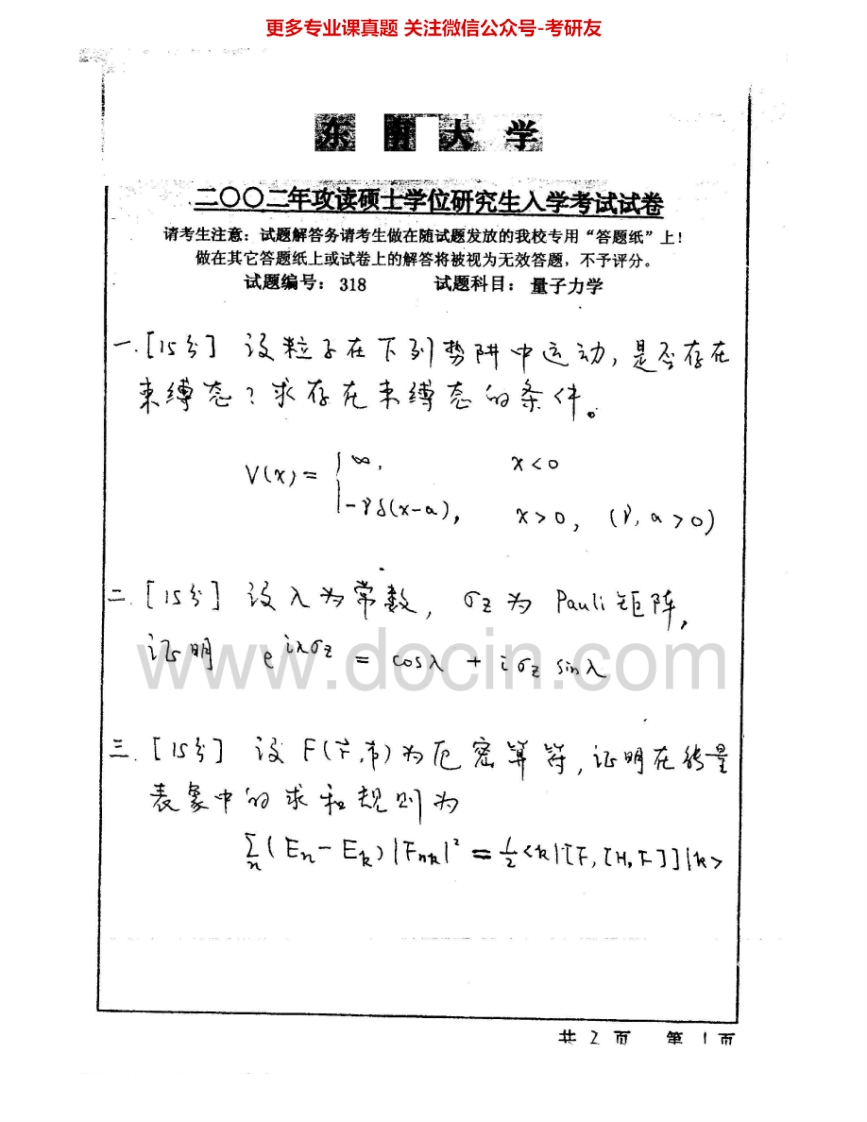 更多专业课真题 关注微信公众号-考研友
东南大学
二〇〇二年攻读硕士学位研究生入学考试试卷
请考生注意：试题解答务请考生做在随试题发放的我校专用“答题纸”上！
做在其它答题纸上或试卷上的解答将被视为无效答题，不予评分。
试题编号：318 试题科目：量子力学
一.[15分] 设粒子在下列势阱中运动, 是否存在
束缚态？求存在束缚态的条件。
V(x) = { ∞, x<0
-γδ(x-a), x>0, (γ, a>0)
二.[15分] 设λ为常数, σz为 Pauli 矩阵,
证明 e^{iλσz} = cosλ + iσz sinλ
www.docin.com
三.[15分] 设 F(r⃗,p⃗)为厄密算符, 证明在能量
表象中的求和规则为
∑n (En-Ek)|Fnk|² = 1/2 <k|[F,[H,F]]|k>
共 2 页 第 1 页